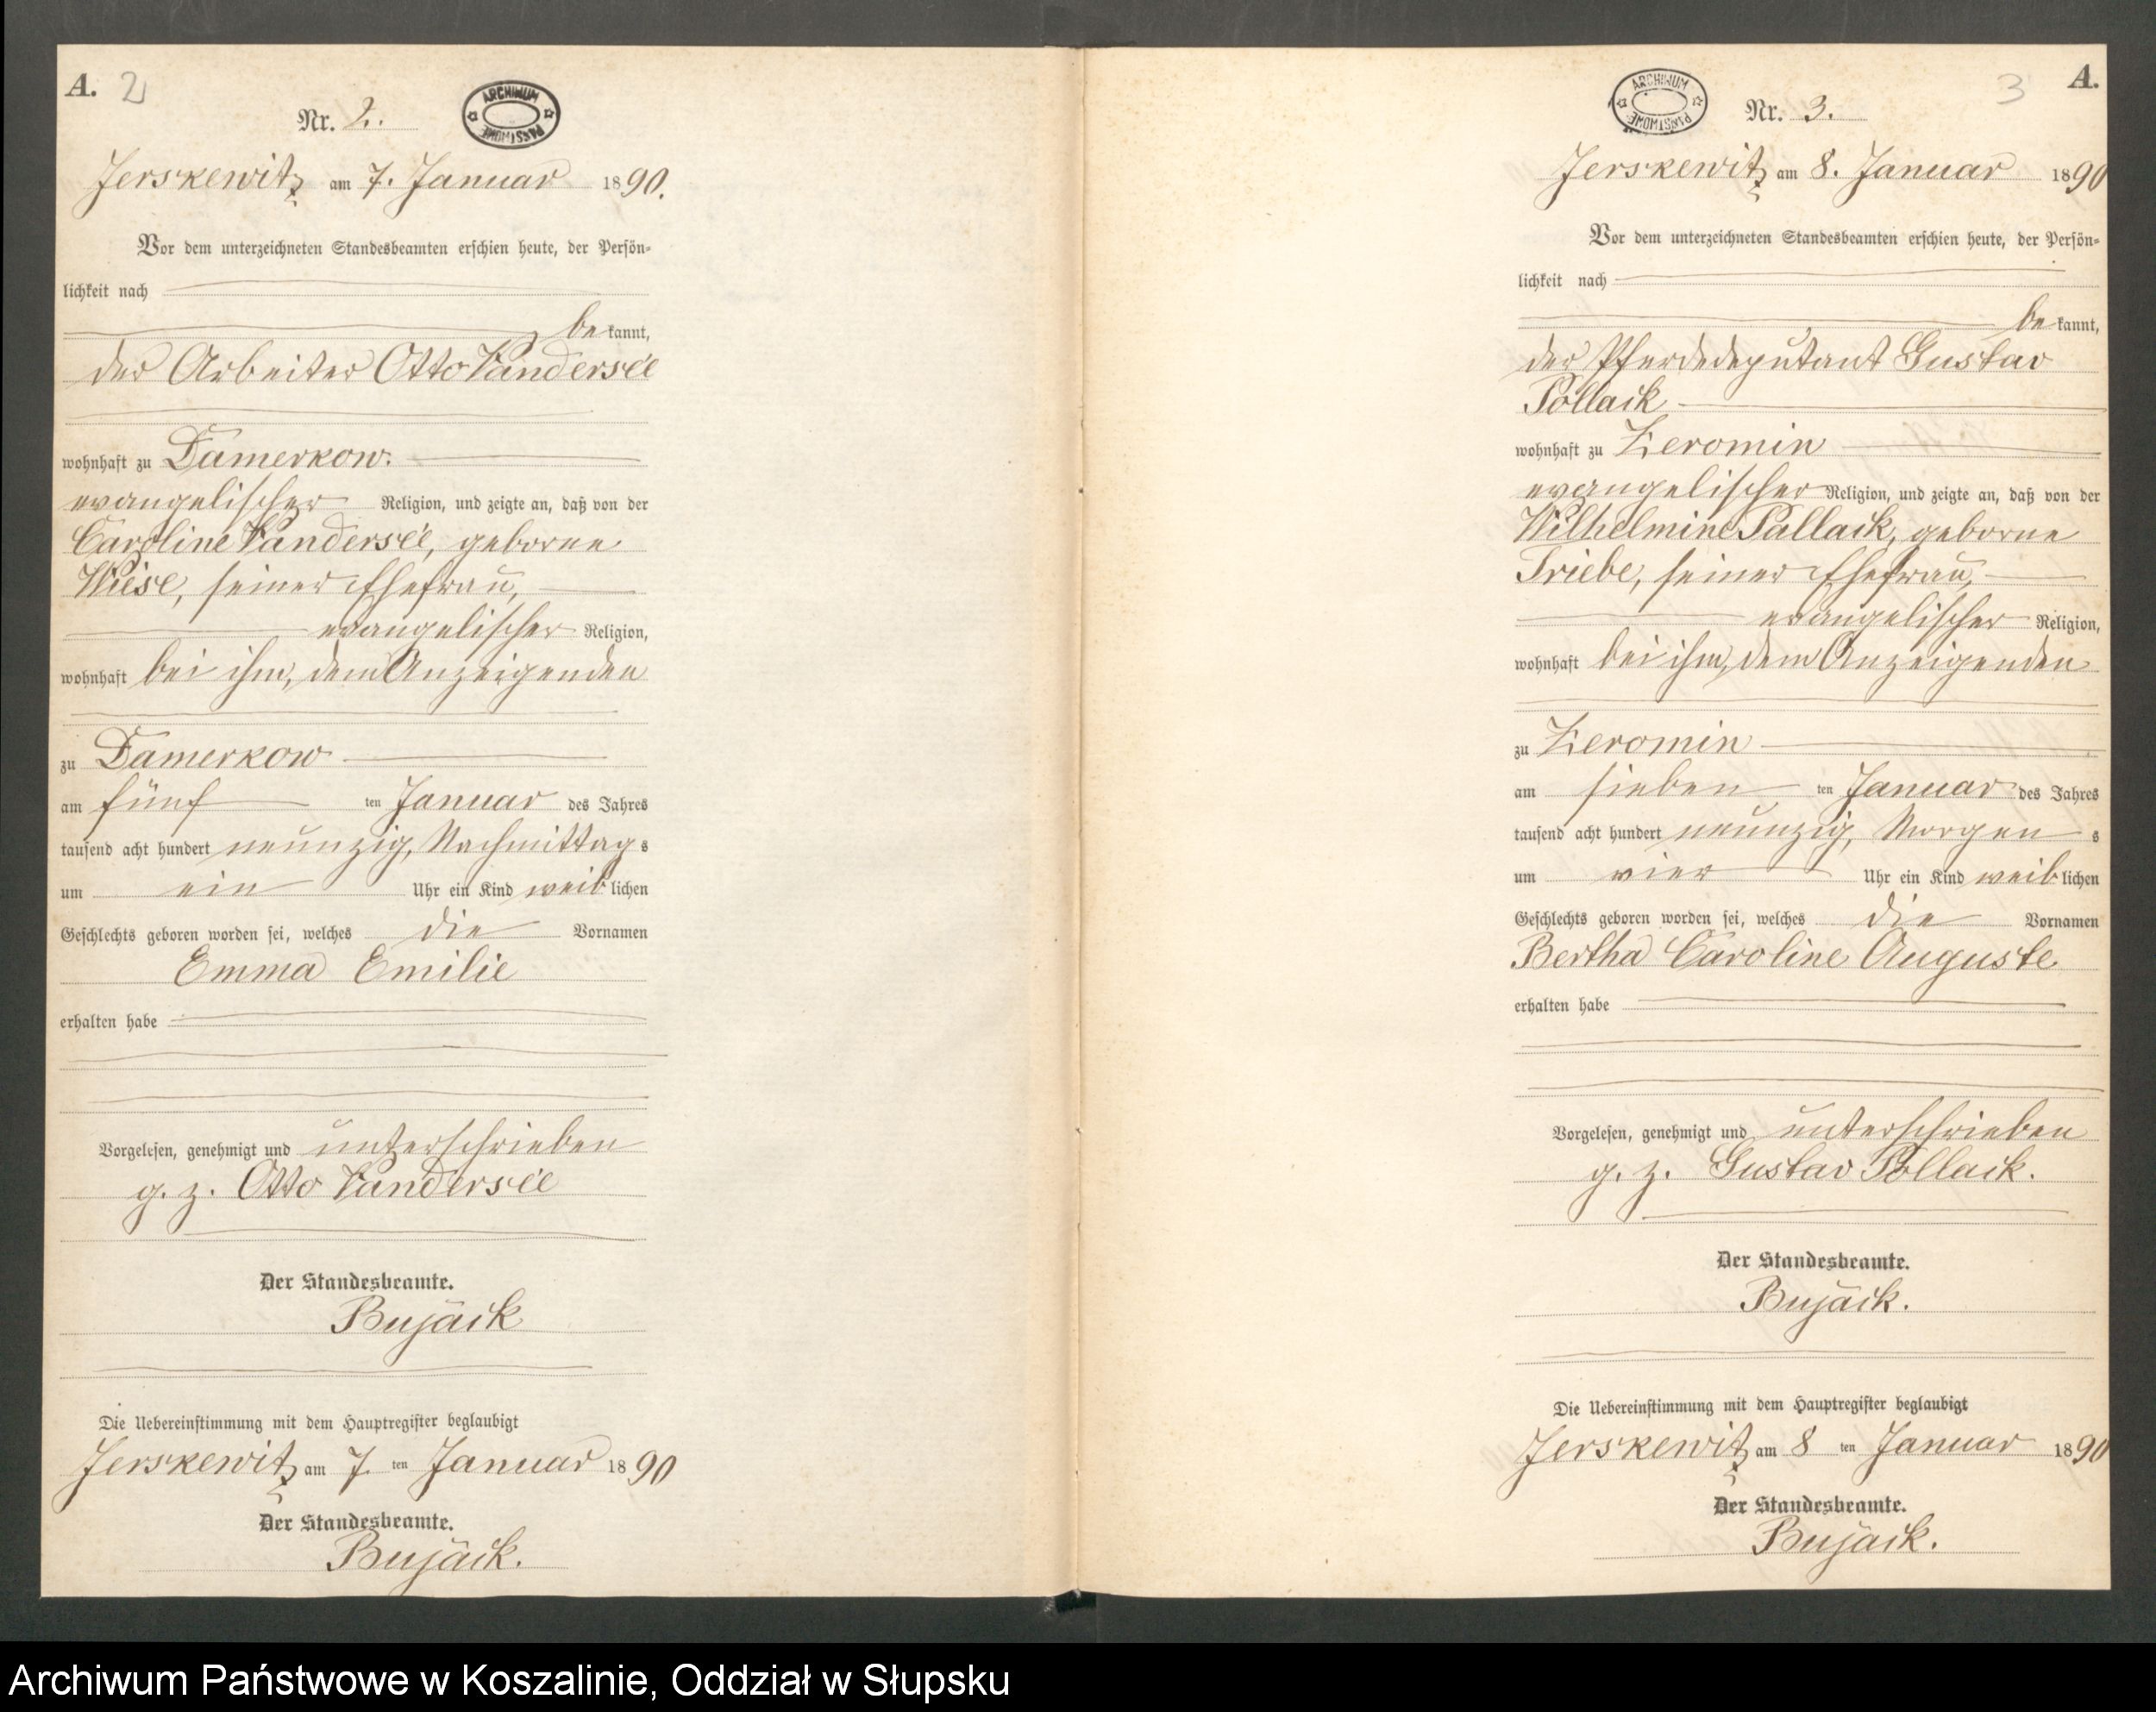 A. 2
Nr. 2.
ARCHIWUM PAŃSTWOWE
Jerskewitz am 7. Januar 1890.
Vor dem unterzeichneten Standesbeamten erschien heute, der Persön-
lichkeit nach
bekannt,
der Arbeiter Otto Vandersee
wohnhaft zu Damerkow.
evangelischer Religion, und zeigte an, daß von der
Caroline Vandersee, geborne
Wiese, seiner Ehefrau,
evangelischer Religion,
wohnhaft bei ihm, dem Anzeigenden
zu Damerkow
am fünf ten Januar des Jahres
tausend acht hundert neunzig, Nachmittags
um ein Uhr ein Kind weiblichen
Geschlechts geboren worden sei, welches die Vornamen
Emma Emilie
erhalten habe
Vorgelesen, genehmigt und unterschrieben
g. z. Otto Vandersee
Der Standesbeamte.
Bujack
Die Uebereinstimmung mit dem Hauptregister beglaubigt
Jerskewitz am 7 ten Januar 1890
Der Standesbeamte.
Bujack.
3 A.
ARCHIWUM PAŃSTWOWE
Nr. 3.
Jerskewitz am 8. Januar 1890
Vor dem unterzeichneten Standesbeamten erschien heute, der Persön-
lichkeit nach
bekannt,
der Pferdedeputant Gustav
Pollack
wohnhaft zu Zeromin
evangelischer Religion, und zeigte an, daß von der
Wilhelmine Pallack, geborne
Triebe, seiner Ehefrau,
evangelischer Religion,
wohnhaft bei ihm, dem Anzeigenden
zu Zeromin
am sieben ten Januar des Jahres
tausend acht hundert neunzig, Morgens
um vier Uhr ein Kind weiblichen
Geschlechts geboren worden sei, welches die Vornamen
Bertha Caroline Auguste
erhalten habe
Vorgelesen, genehmigt und unterschrieben
g. z. Gustav Pollack.
Der Standesbeamte.
Bujack.
Die Uebereinstimmung mit dem Hauptregister beglaubigt
Jerskewitz am 8 ten Januar 1890
Der Standesbeamte.
Bujack.
Archiwum Państwowe w Koszalinie, Oddział w Słupsku